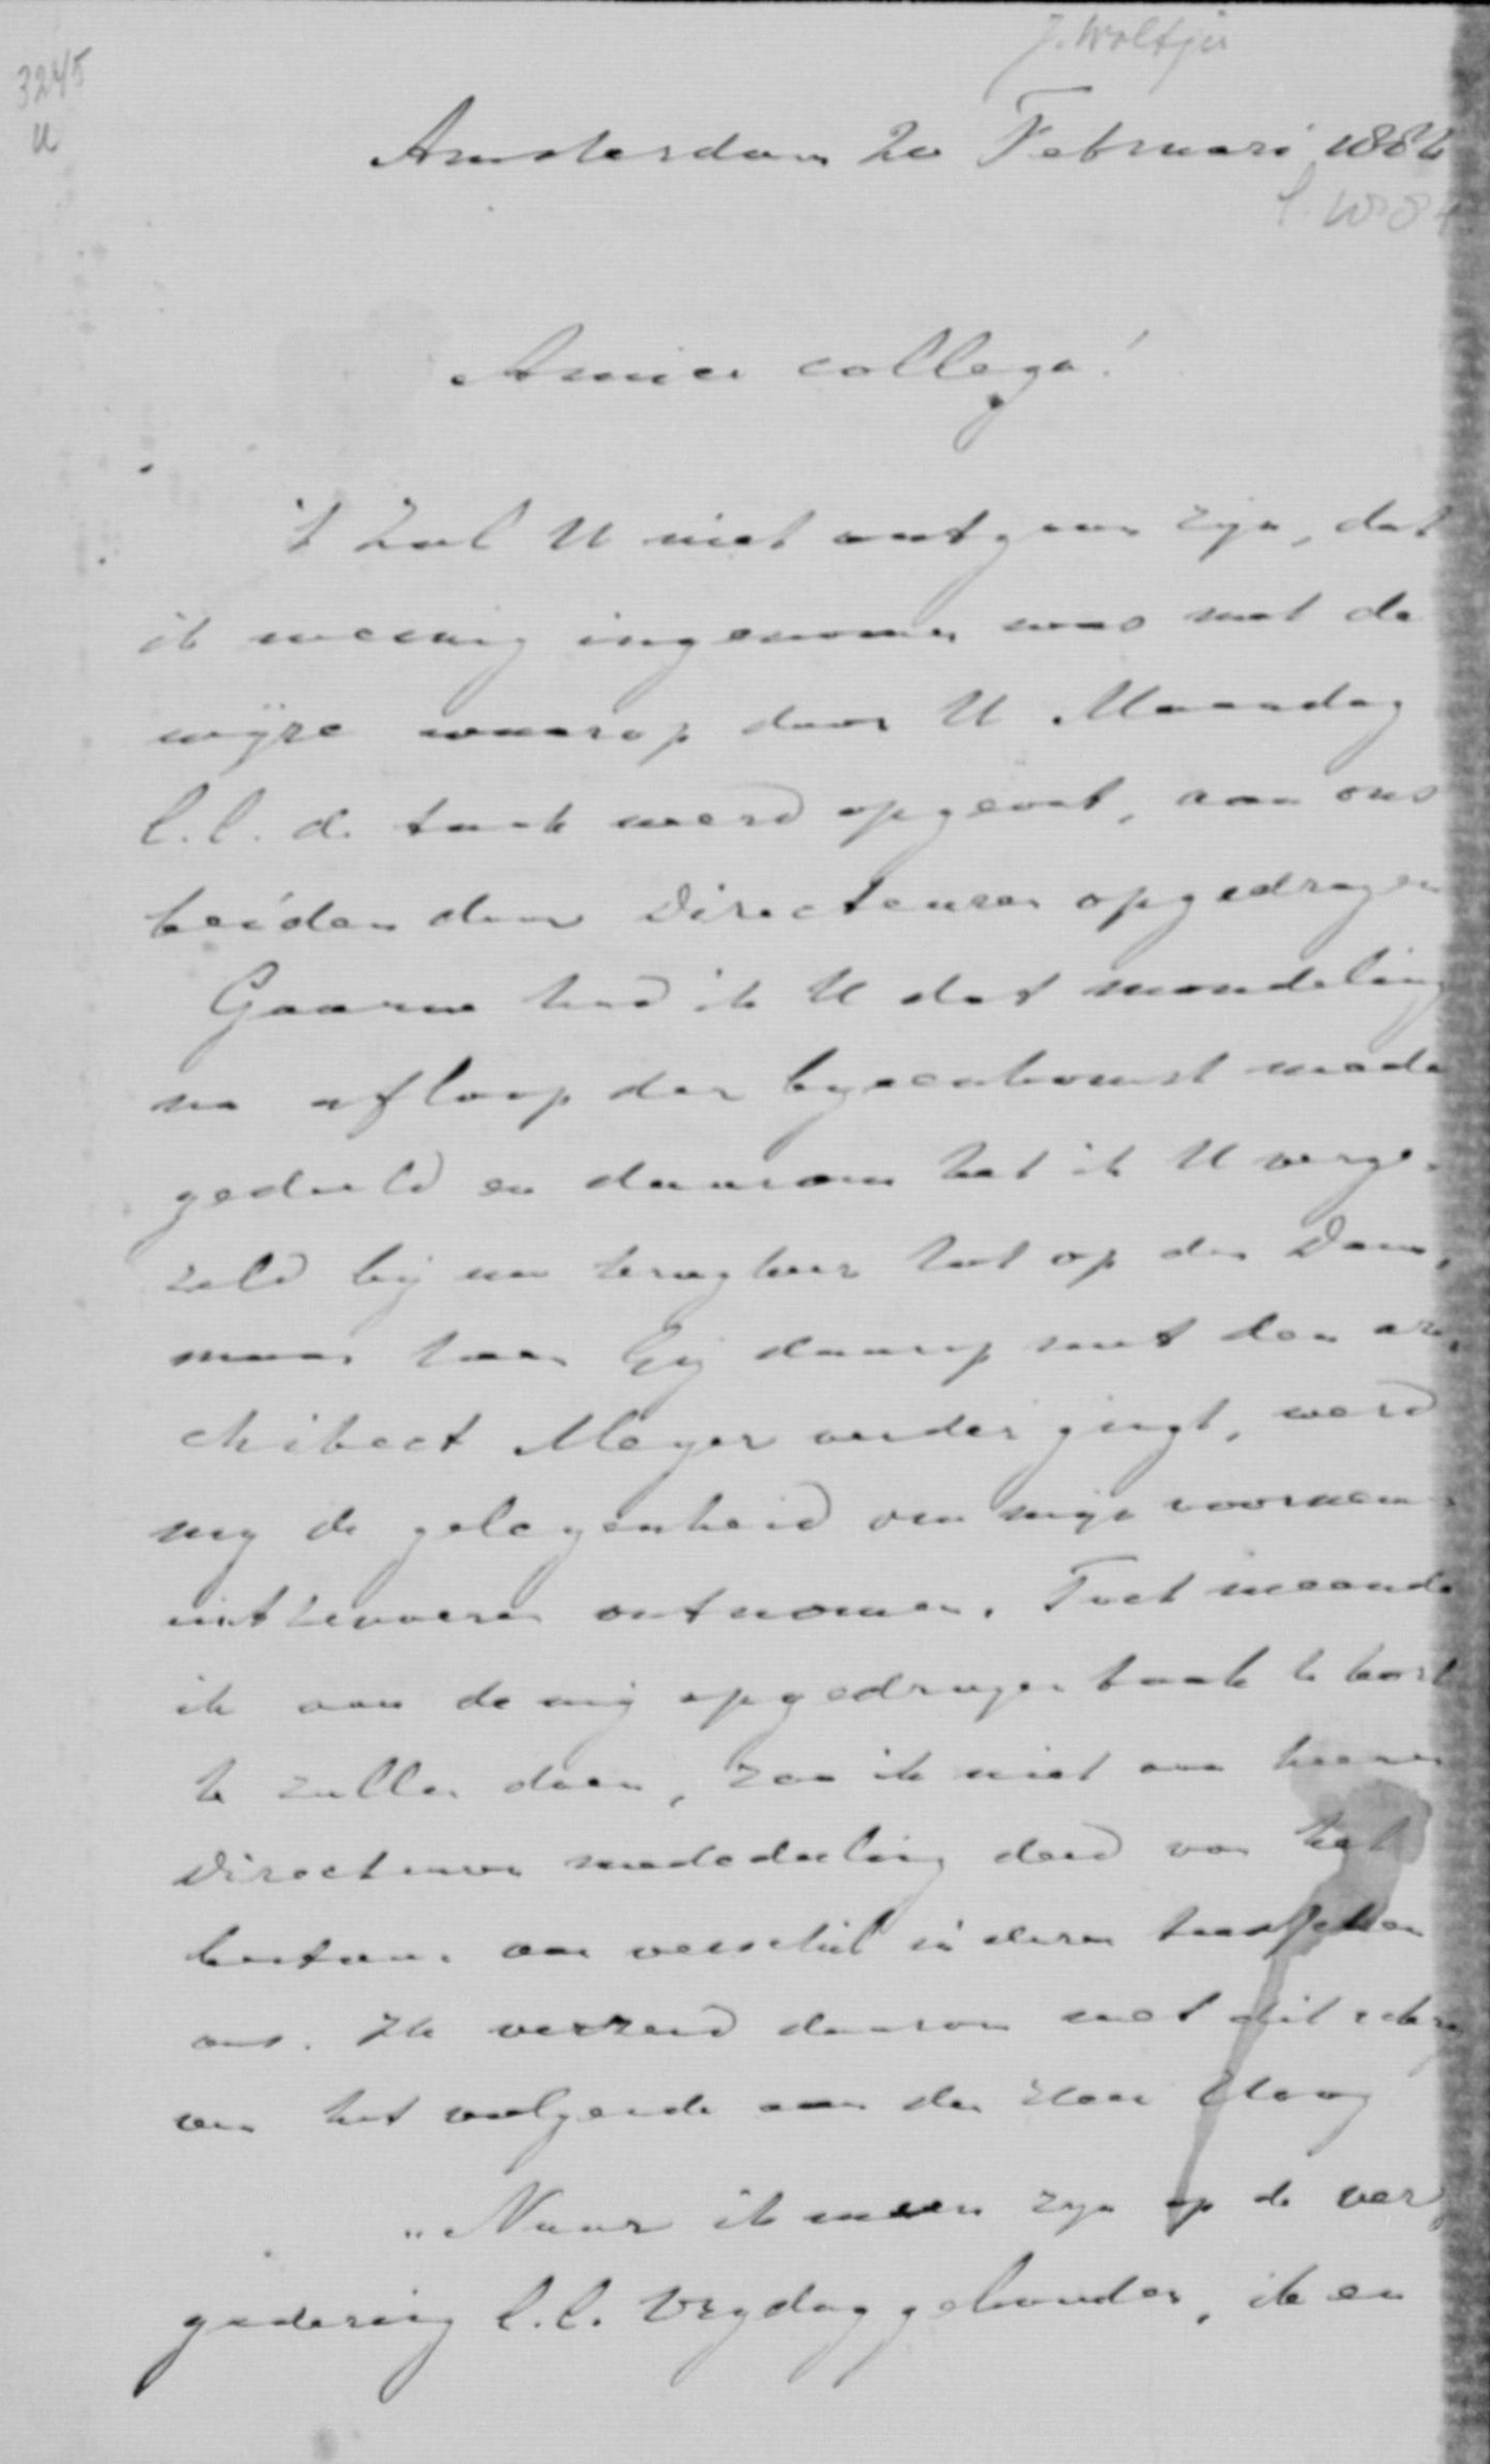 J. Woltjer
3245
u
Amsterdam 20 Februari 1884
Amice collega!
't Zal U niet ontgaan zijn, dat
ik weinig ingenomen was met de
wijze waarop door U Maandag
l.l. de taak werd opgevat, aan ons
beiden door Directeuren opgedragen
Gaarne had ik U dat mondeling
na afloop der bijeenkomst mede
gedeeld en daarom had ik U verge-
zeld bij uw terugkeer tot op den Dam,
maar toen Gij daarop met den ar-
chitect Meyer verder gingt, werd
mij de gelegenheid om mijn voornemen
uittevoeren ontnomen. Toch meende
ik aan de mij opgedragen taak te kort
te zullen doen, zoo ik niet aan heeren
Directeuren mededeeling deed van het
bestaan van verschil in dezen tusschen
ons. Ik verzend daarom met dit schrij
ven het volgende aan den Heer Hovy
"Naar ik meen zijn op de ver
gadering l.l. Vrijdag gehouden, ik en